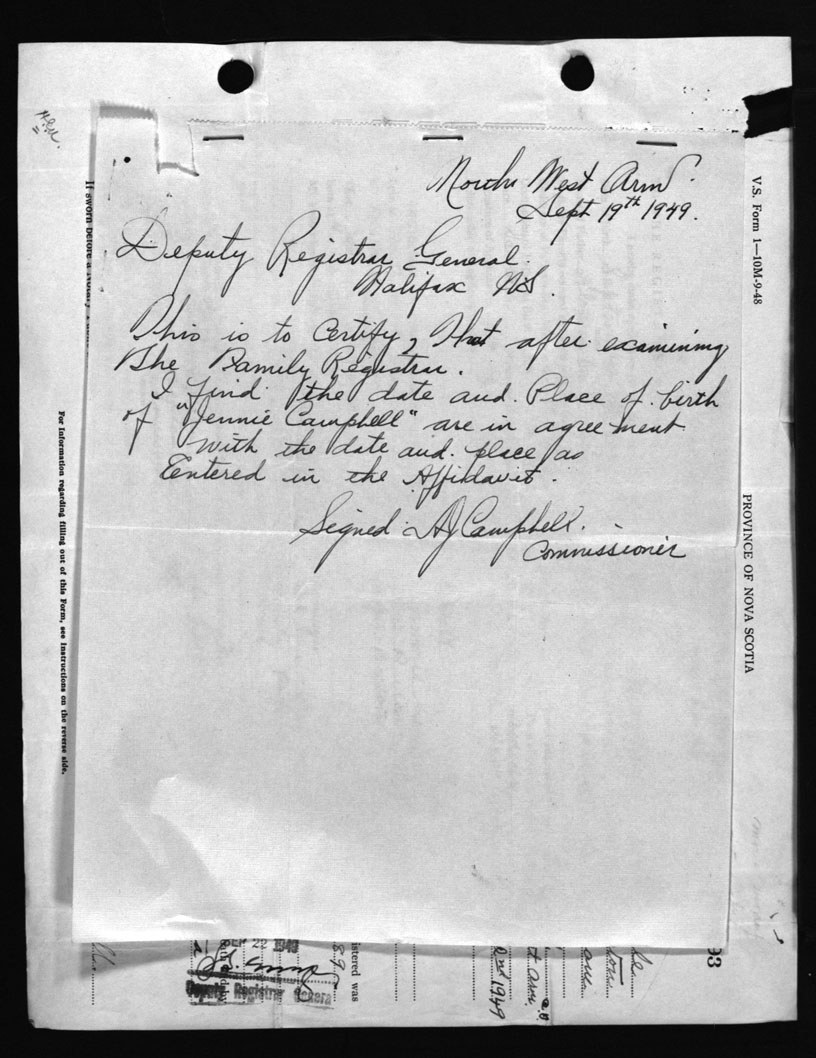 North West Arm.
Sept 19th 1949.
Deputy Registrar General.
Halifax NS.
This is to Certify, That after examining
The Family Registrar.
I find the date and Place of birth
of "Jennie Campbell" are in agreement
with the date and place as
Entered in the Affidavit.
Signed AJ Campbell.
Commissioner
V.S. Form 1—10M-9-48
PROVINCE OF NOVA SCOTIA
If sworn before a Notary
For Information regarding filling out of this Form, see Instructions on the reverse side.
93
2nd 1949
t Arm.
istered was
22 1949
Deputy Registrar General